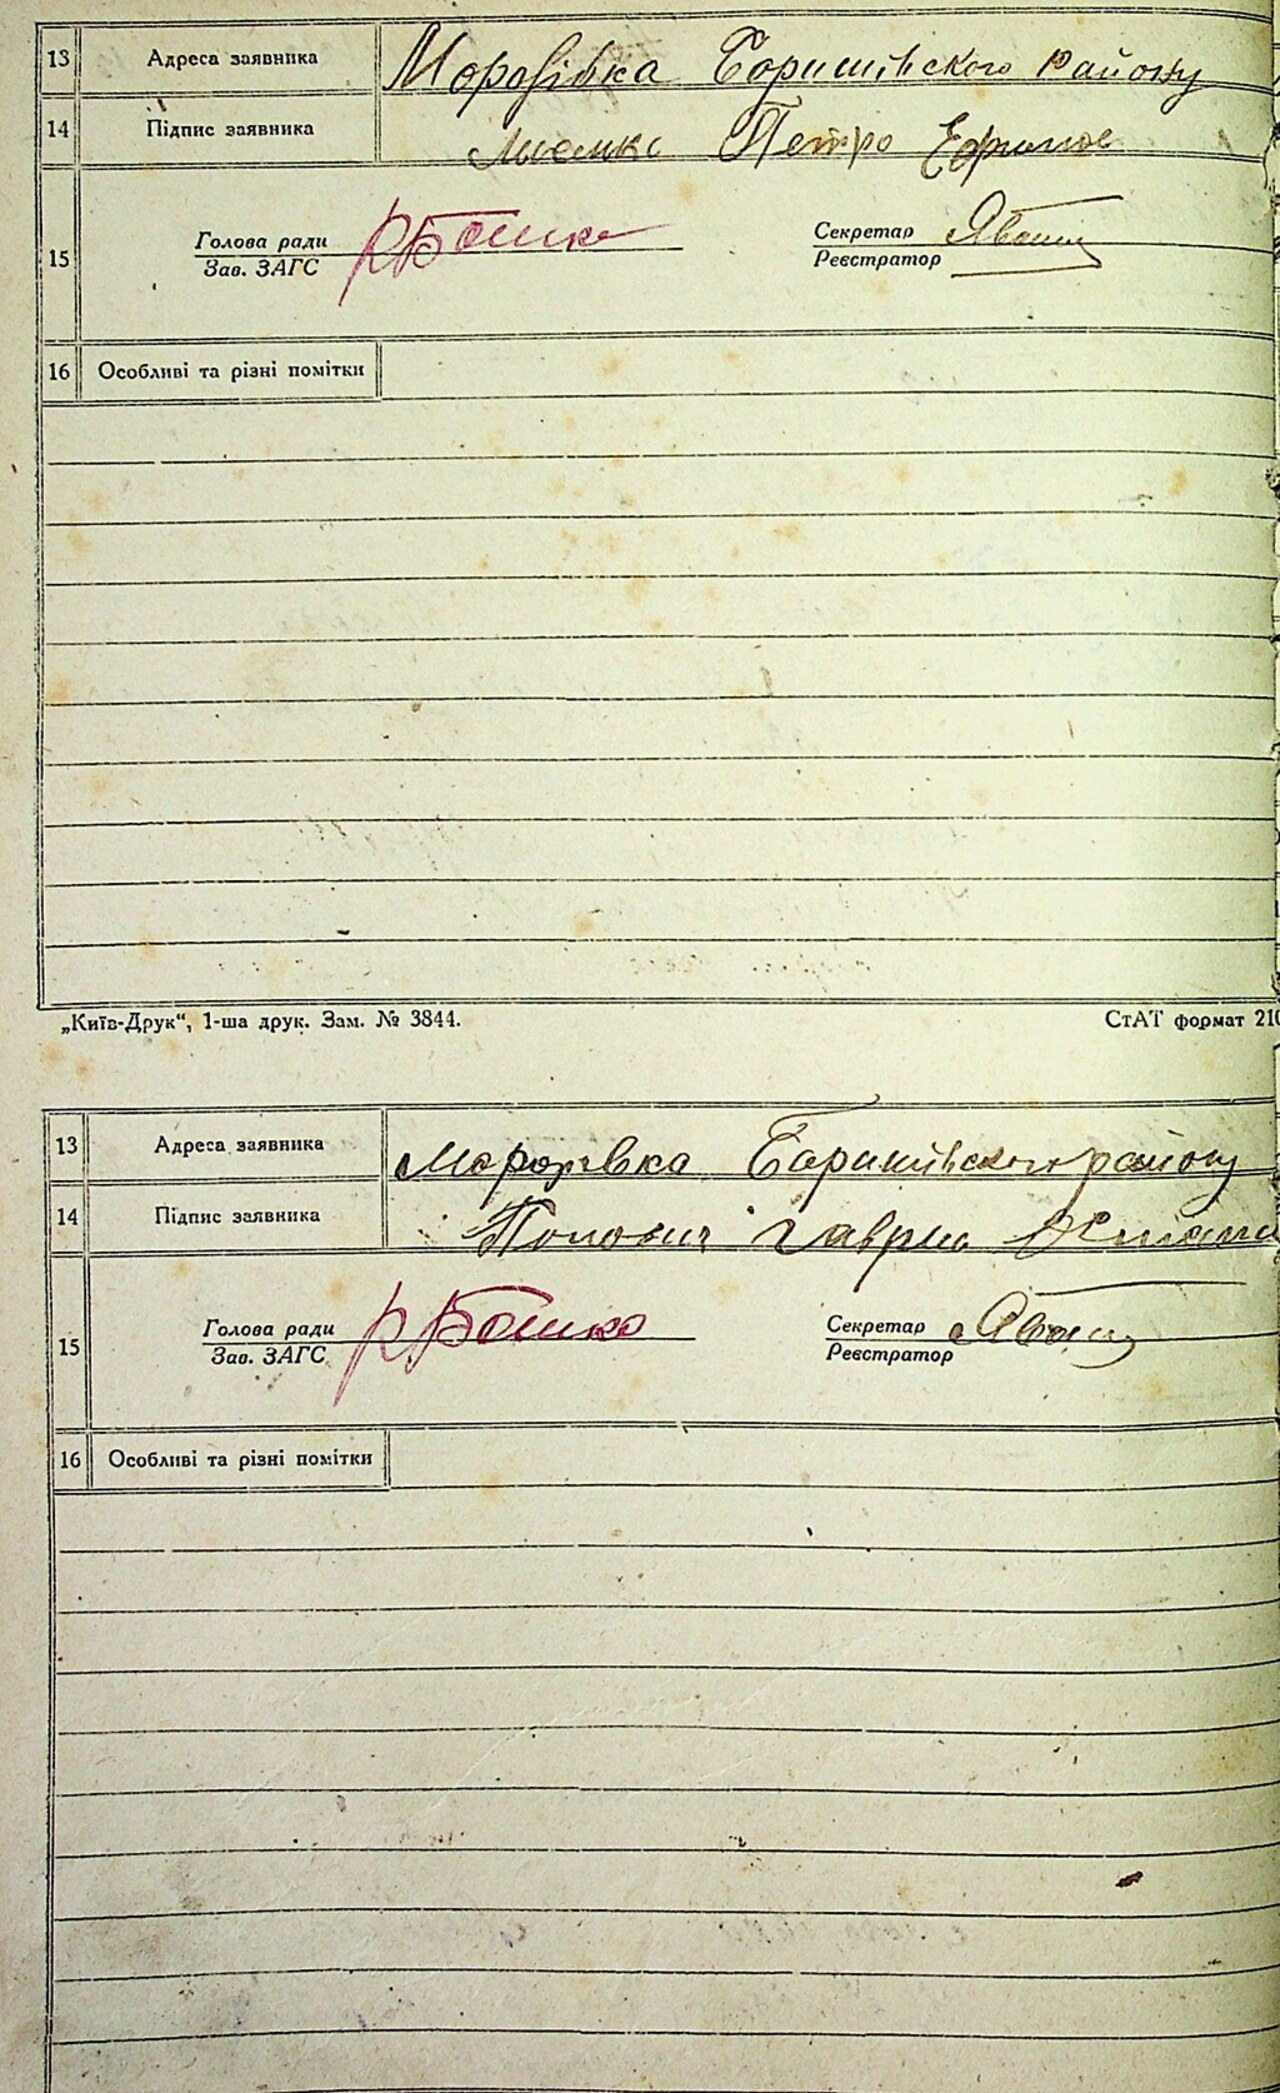 13 Адреса заявника Морозівка Баришівського району
14 Підпис заявника Петро
Голова ради Секретар
15 Зав. ЗАГС РБошко Реєстратор
16 Особливі та різні помітки
„Київ-Друк“, 1-ша друк. Зам. № 3844. СтАТ формат 210
13 Адреса заявника Морозівка Баришівського району
14 Підпис заявника Попович Гаврило
Голова ради Секретар
15 Зав. ЗАГС РБошко Реєстратор
16 Особливі та різні помітки